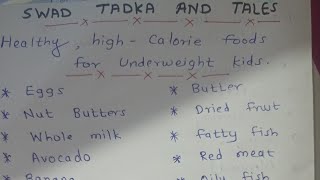 SWAD TADKA AND TALES
Healthy, high-Calorie foods
for Underweight kids.
* Eggs
* Nut Butters
* Whole milk
* Avocado
* Banana
* Butter
* Dried fruit
* fatty fish
* Red meat
* Oily fish